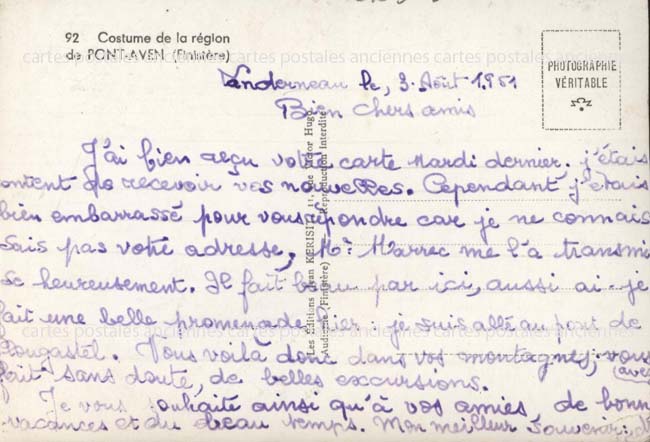 92 Costume de la région
de PONT-AVEN (Finistère)
PHOTOGRAPHIE
VÉRITABLE
Landerneau le, 3. Août 1951
Bien chers amis
J'ai bien reçu votre carte Mardi dernier. j'étais
content de recevoir vos nouvelles. Cependant j'étais
bien embarrassé pour vous répondre car je ne connais
sais pas votre adresse, Mr Marrec me l'a transmi
se heureusement. Il fait beau par ici, aussi ai-je
fait une belle promenade hier : je suis allé au pont de
Plougastel. Vous voilà donc dans vos montagnes, vous
(avez
fait sans doute, de belles excursions.
Je vous souhaite ainsi qu'à vos amies de bonn
vacances et du beau temps. Mon meilleur souvenir :
Les Editions Jean KERISIT, rue Victor Hugo
Audierne (Finistère) Reproduction interdite
cartes postales anciennes cartes postales anciennes cartes postales anciennes
cartes postales anciennes cartes postales anciennes cartes postales anciennes